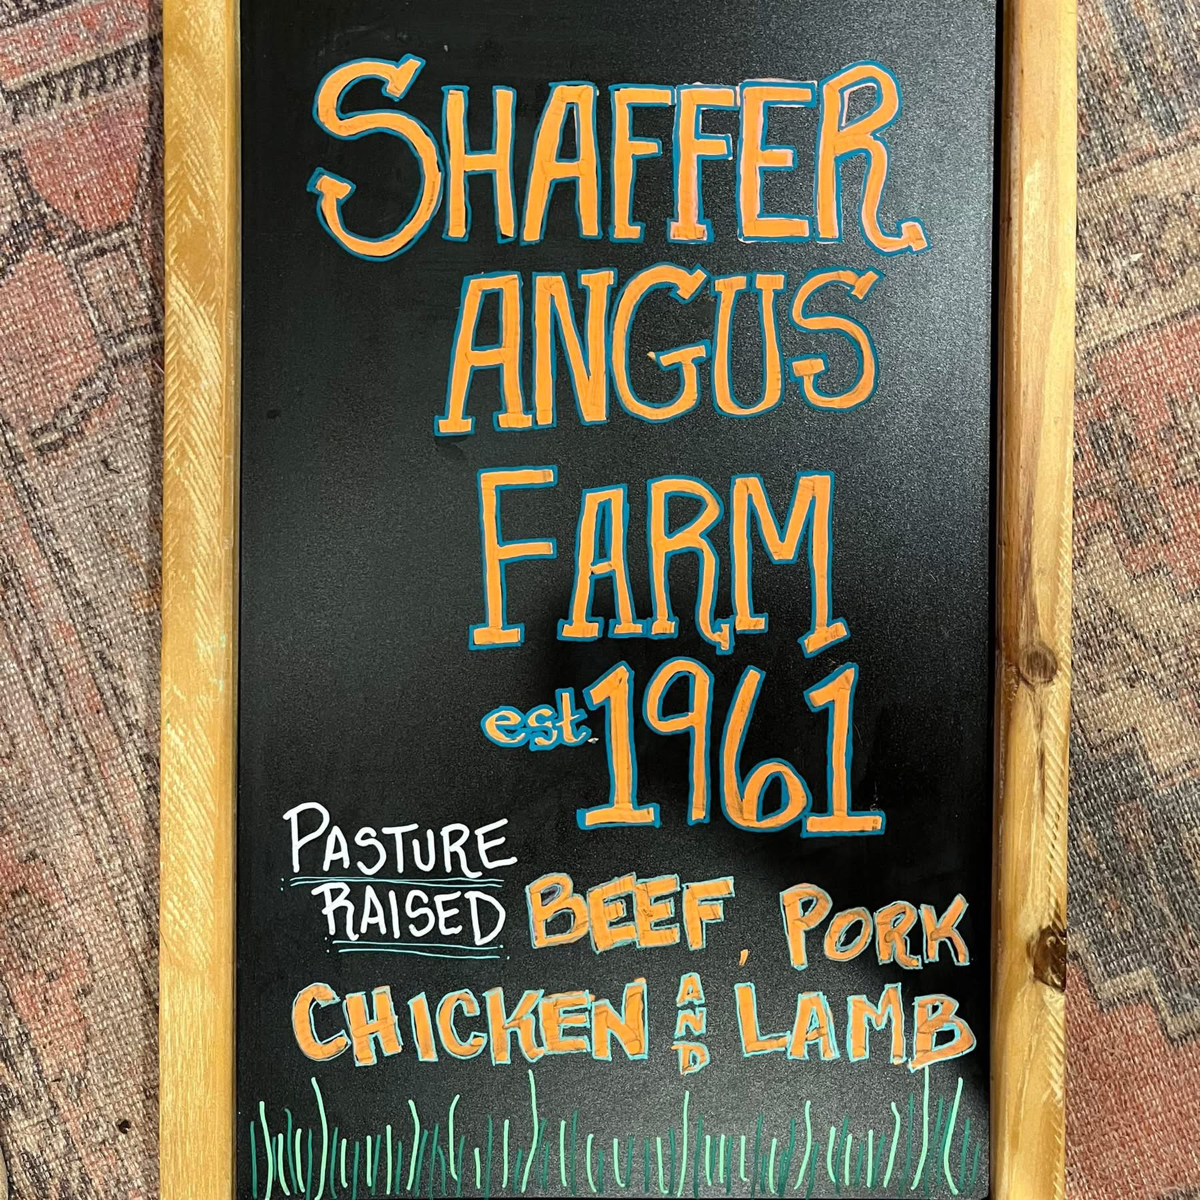 SHAFFER
ANGUS
FARM
est. 1961
PASTURE
RAISED BEEF, PORK
CHICKEN AND LAMB